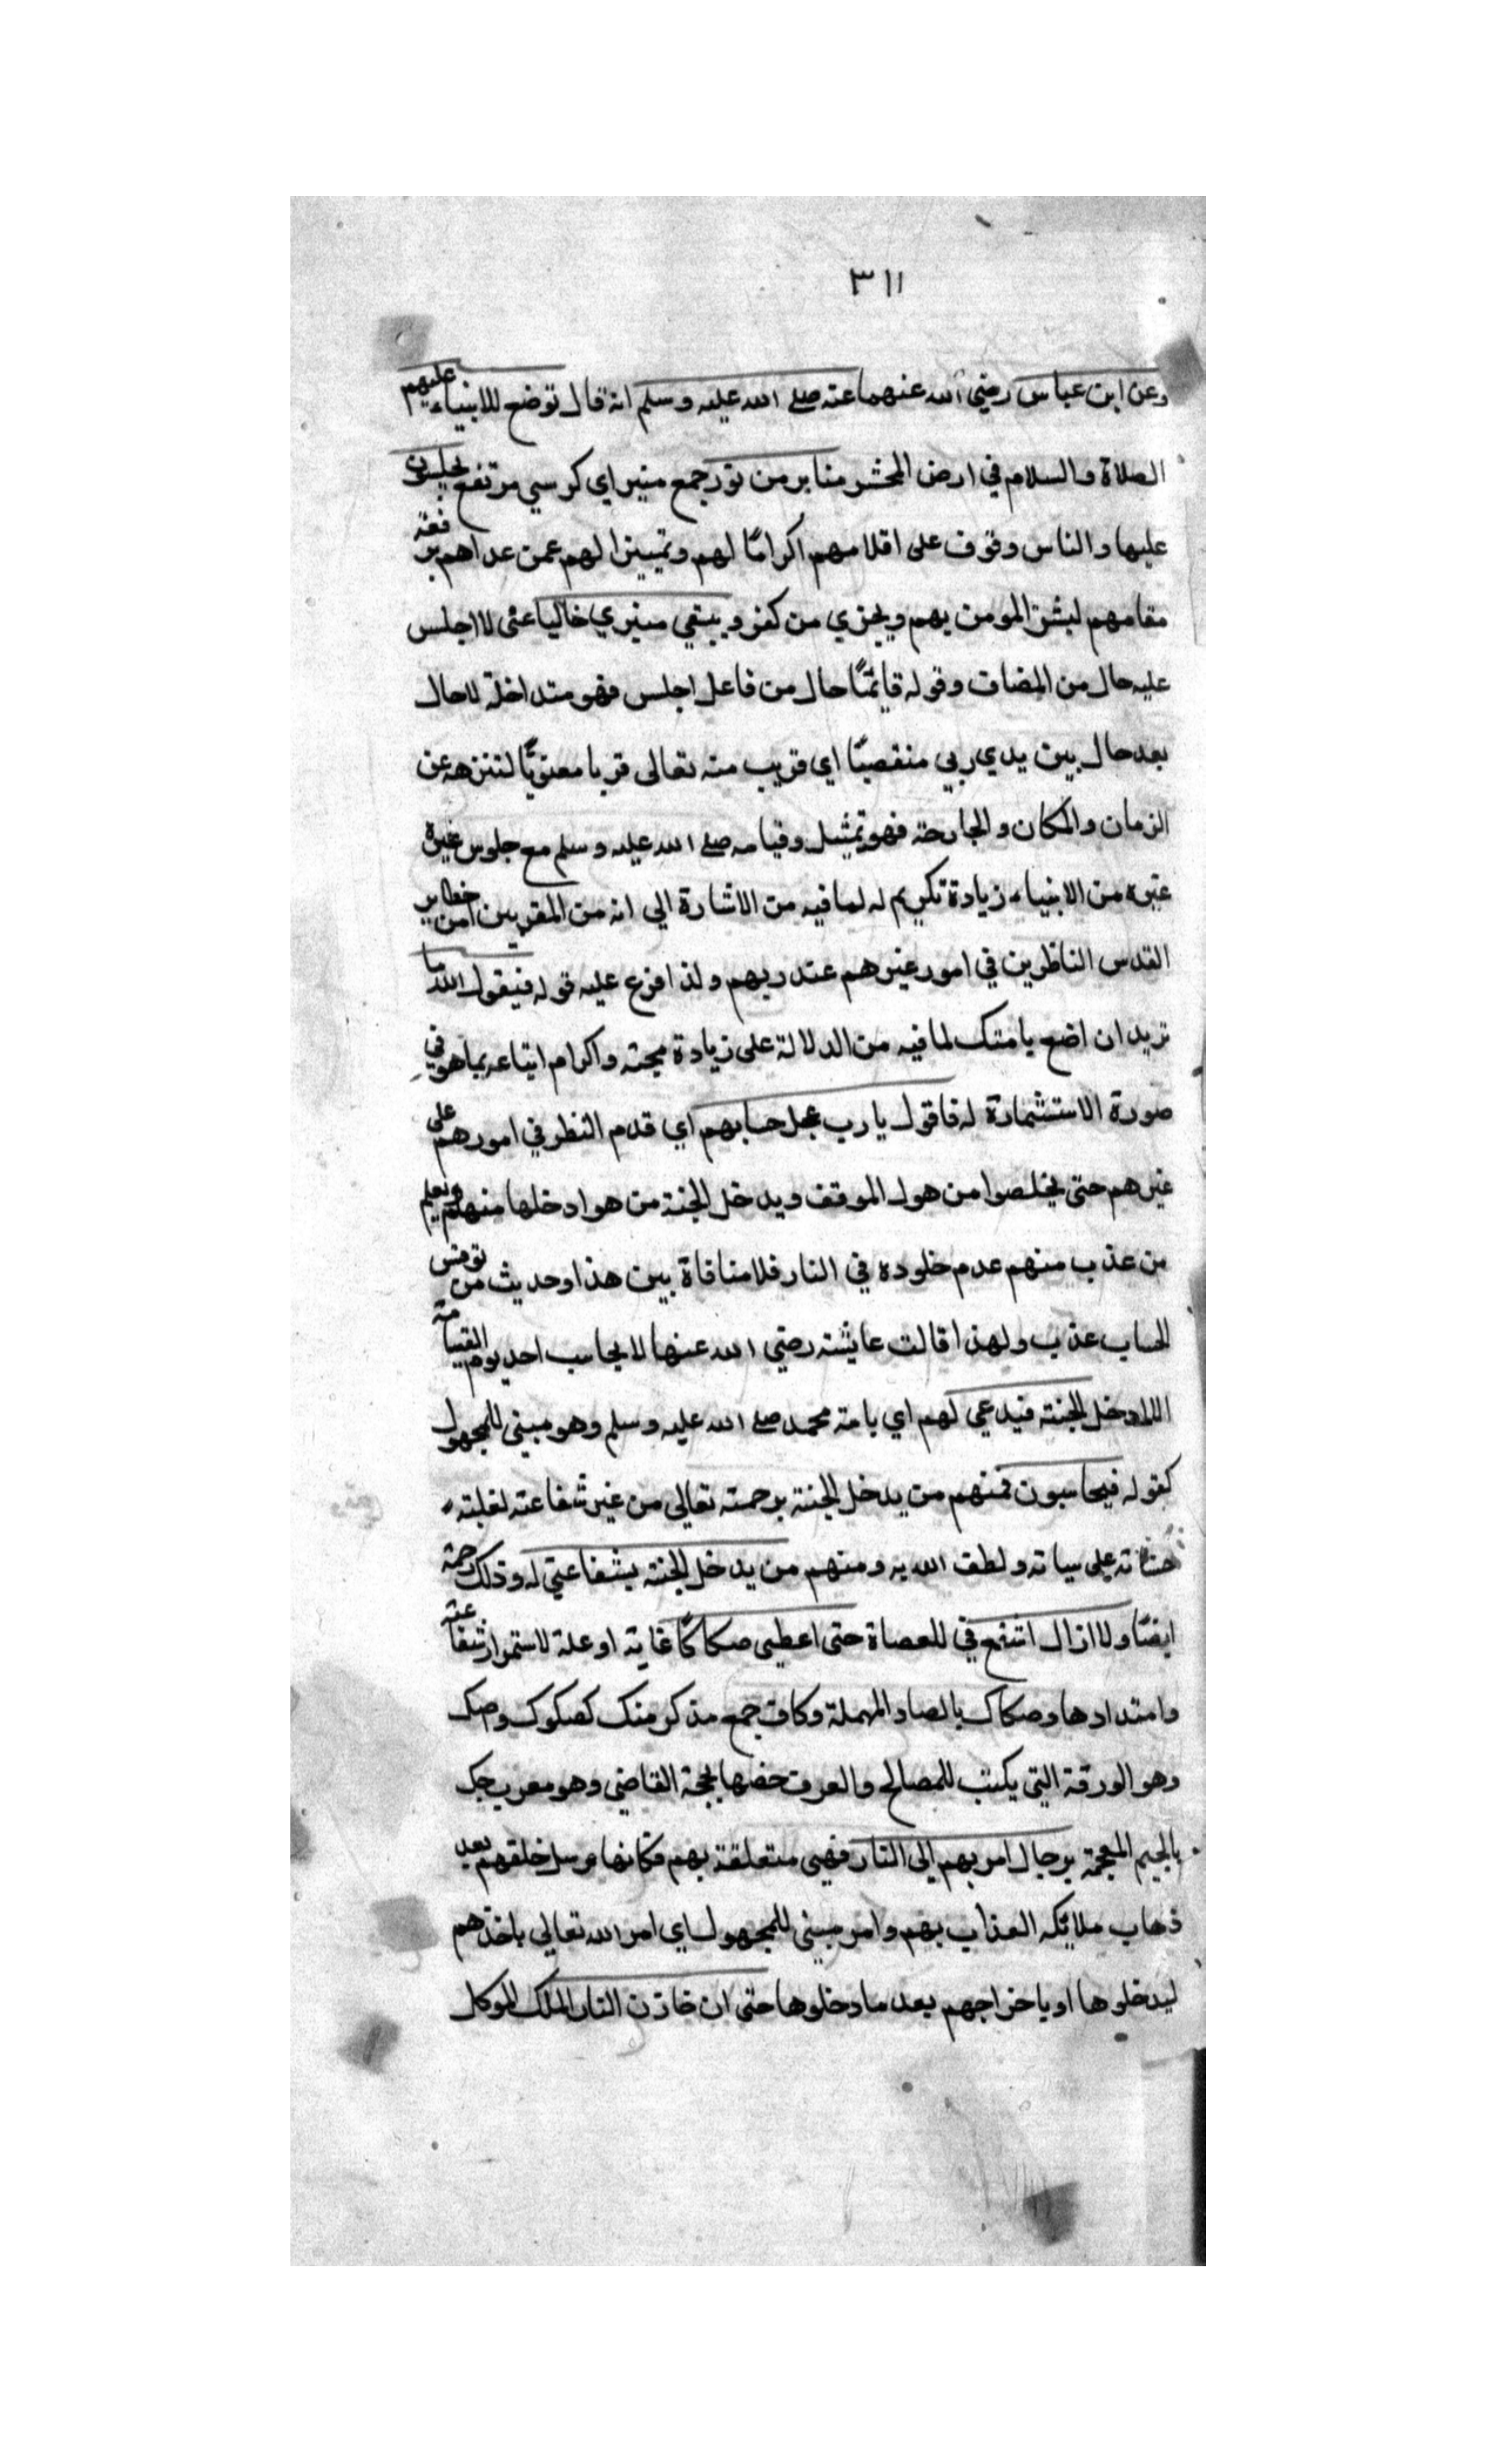 ٣١١
وعن ابن عباس رضي الله عنهما عنه صلى الله عليه وسلم انه قال توضع للانبياء عليهم
الصلاة والسلام في ارض المحشر منابر من نور جمع منبر اي كرسي مرتفع يجلسون
عليها والناس وقوف على اقدامهم اكراما لهم وتمييزا لهم عمن عداهم برفعة
مقامهم ليشق المومن بهم ويخزي من كفر ويبقي منبري خاليا عنى لا اجلس
عليه حال من المضاف وقوله قايمًا حال من فاعل اجلس فهو متداخلة لا حال
بعد حال بين يدي ربي منتصبًا اي قريب منه تعالى قربا معنويًا لتنزهه عن
الزمان والمكان والجارحة فهو تمثيل وقيامه صلى الله عليه وسلم مع جلوس غيره
غيره من الانبياء زيادة تكريم له لما فيه من الاشارة الي انه من المقربين من خطاير
القدس الناظرين في امور غيرهم عند ربهم ولذا فرع عليه قوله فيقول الله ما
تريد ان اضع بامتك لما فيه من الدلالة على زيادة محبته واكرام اتباعه بما هو في
صورة الاستشارة له فاقول يارب عجل حسابهم اي قدم النظر في امورهم على
غيرهم حتى يخلصوا من هول الموقف ويدخل الجنة من هو ادخلها منهم ويعلم
من عذب منهم عدم خلوده في النار فلا منافاة بين هذا وحديث من نوقش
الحساب عذب ولهذا قالت عايشة رضي الله عنها لا يحاسب احد يوم القيامة
الا دخل الجنة فيدعي لهم اي بامة محمد صلى الله عليه وسلم وهو مبني للمجهول
كقوله فيحاسبون فمنهم من يدخل الجنة برحمته تعالي من غير شفاعته لغلبته
حسناته على سياته ولطف الله به ومنهم من يدخل الجنة بشفاعتي له وذلك رحمة
ايضًا ولا ازال اشفع في للعصاة حتى اعطي صكاكًا غاية او علة لاستمرار شفاعته
وامتدادها وصكاك بالصاد المهملة وكاف جمع مذكر منك كصكوك وصك
وهو الورقة التي يكتب للمصالح والعرف خصها بحجة القاضي وهو معرب جك
بالجيم المعجمة برجال امر بهم الي النار فهي متعلقة بهم فكانها مرسل خلفهم بعد
ذهاب ملائكه العذاب بهم وامر مبني للمجهول اي امر الله تعالي باخذهم
ليدخلوها او باخراجهم بعد ما دخلوها حتى ان خازن النار الملك الموكل